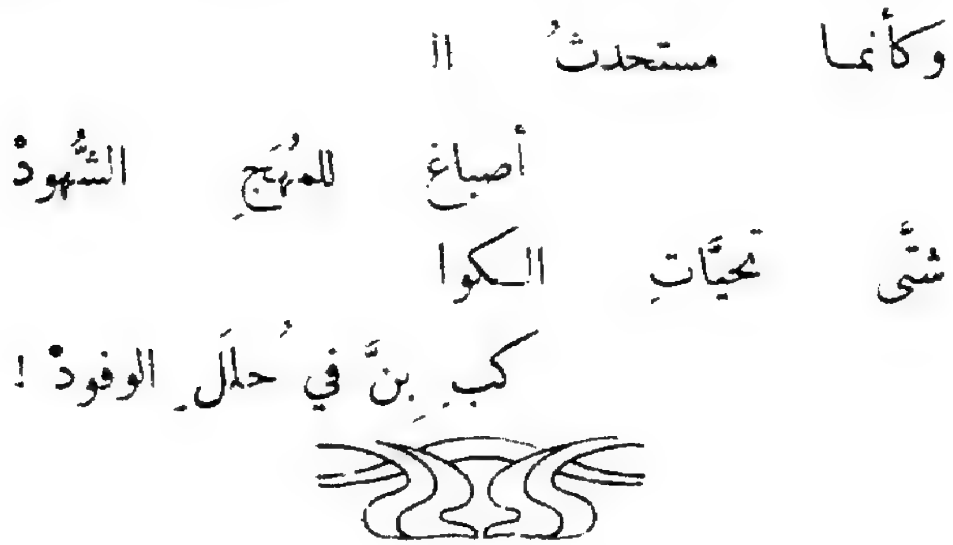 وكأنما مستحدثُ الـ
أصباغِ للمُهَجِ الشُّهودْ
شتَّى تحيَّاتِ الكوا
كبِ بِنَّ في حُللِ الوفودْ !